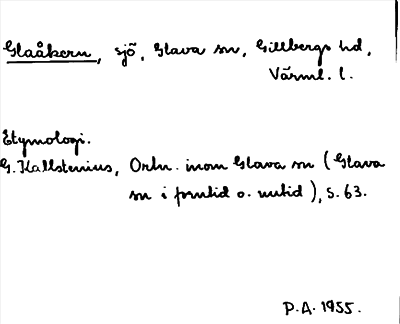 Glaåkern, sjö, Glava sn, Gillbergs hd,
Värml. l.
Etymologi.
G. Kallstenius, Ortn. inom Glava sn (Glava
sn i forntid o. nutid), s. 63.
P.A. 1955.